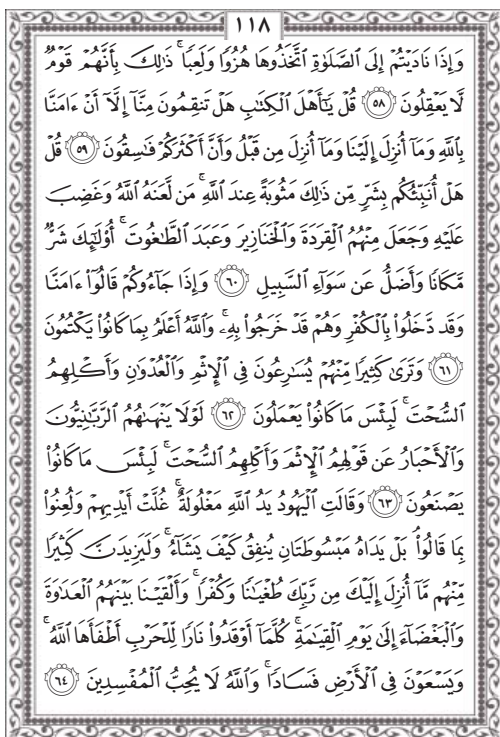 ١١٨
وَإِذَا نَادَيْتُمْ إِلَى ٱلصَّلَوٰةِ ٱتَّخَذُوهَا هُزُوًا وَلَعِبًا ۚ ذَٰلِكَ بِأَنَّهُمْ قَوْمٌ
لَّا يَعْقِلُونَ ٥٨ قُلْ يَـٰٓأَهْلَ ٱلْكِتَـٰبِ هَلْ تَنقِمُونَ مِنَّآ إِلَّآ أَنْ ءَامَنَّا
بِٱللَّهِ وَمَآ أُنزِلَ إِلَيْنَا وَمَآ أُنزِلَ مِن قَبْلُ وَأَنَّ أَكْثَرَكُمْ فَـٰسِقُونَ ٥٩ قُلْ
هَلْ أُنَبِّئُكُم بِشَرٍّ مِّن ذَٰلِكَ مَثُوبَةً عِندَ ٱللَّهِ ۚ مَن لَّعَنَهُ ٱللَّهُ وَغَضِبَ
عَلَيْهِ وَجَعَلَ مِنْهُمُ ٱلْقِرَدَةَ وَٱلْخَنَازِيرَ وَعَبَدَ ٱلطَّـٰغُوتَ ۚ أُو۟لَـٰٓئِكَ شَرٌّ
مَّكَانًا وَأَضَلُّ عَن سَوَآءِ ٱلسَّبِيلِ ٦٠ وَإِذَا جَآءُوكُمْ قَالُوٓا۟ ءَامَنَّا
وَقَد دَّخَلُوا۟ بِٱلْكُفْرِ وَهُمْ قَدْ خَرَجُوا۟ بِهِۦ ۚ وَٱللَّهُ أَعْلَمُ بِمَا كَانُوا۟ يَكْتُمُونَ
٦١ وَتَرَىٰ كَثِيرًا مِّنْهُمْ يُسَـٰرِعُونَ فِى ٱلْإِثْمِ وَٱلْعُدْوَٰنِ وَأَكْلِهِمُ
ٱلسُّحْتَ ۚ لَبِئْسَ مَا كَانُوا۟ يَعْمَلُونَ ٦٢ لَوْلَا يَنْهَىٰهُمُ ٱلرَّبَّـٰنِيُّونَ
وَٱلْأَحْبَارُ عَن قَوْلِهِمُ ٱلْإِثْمَ وَأَكْلِهِمُ ٱلسُّحْتَ ۚ لَبِئْسَ مَا كَانُوا۟
يَصْنَعُونَ ٦٣ وَقَالَتِ ٱلْيَهُودُ يَدُ ٱللَّهِ مَغْلُولَةٌ ۚ غُلَّتْ أَيْدِيهِمْ وَلُعِنُوا۟
بِمَا قَالُوا۟ ۘ بَلْ يَدَاهُ مَبْسُوطَتَانِ يُنفِقُ كَيْفَ يَشَآءُ ۚ وَلَيَزِيدَنَّ كَثِيرًا
مِّنْهُم مَّآ أُنزِلَ إِلَيْكَ مِن رَّبِّكَ طُغْيَـٰنًا وَكُفْرًا ۚ وَأَلْقَيْنَا بَيْنَهُمُ ٱلْعَدَٰوَةَ
وَٱلْبَغْضَآءَ إِلَىٰ يَوْمِ ٱلْقِيَـٰمَةِ ۚ كُلَّمَآ أَوْقَدُوا۟ نَارًا لِّلْحَرْبِ أَطْفَأَهَا ٱللَّهُ ۚ
وَيَسْعَوْنَ فِى ٱلْأَرْضِ فَسَادًا ۚ وَٱللَّهُ لَا يُحِبُّ ٱلْمُفْسِدِينَ ٦٤